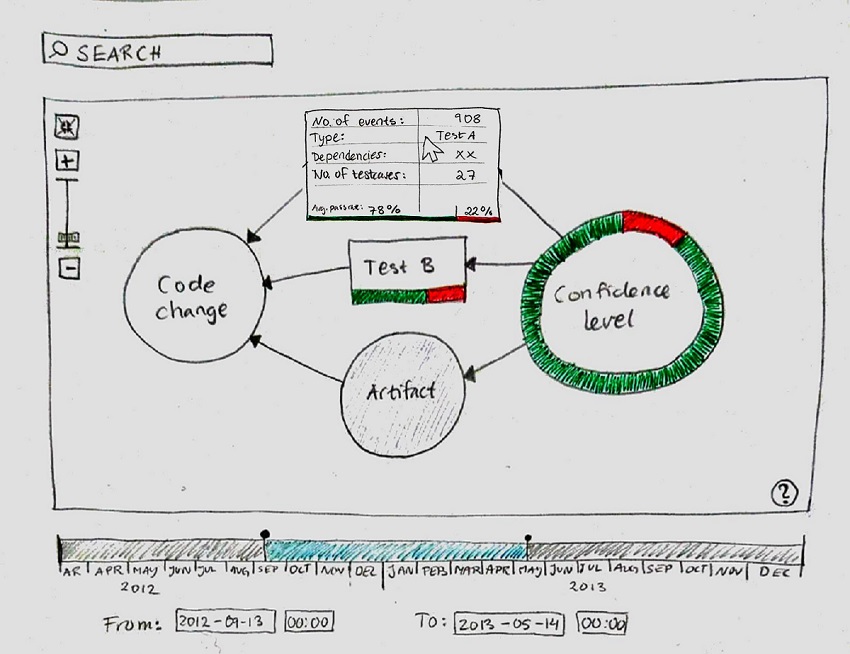 SEARCH
No. of events: 908
Type: Test A
Dependencies: xx
No. of testcases: 27
Avg. passrate: 78% 22%
Test B
Code
change
Confidence
level
Artifact
?
AR APR MAY JUN JUL AUG SEP OCT NOV DEC JAN FEB MAR APR MAY JUN JUL AUG SEP OCT NOV DEC
2012 2013
From: 2012-09-13 00:00 To: 2013-05-14 00:00